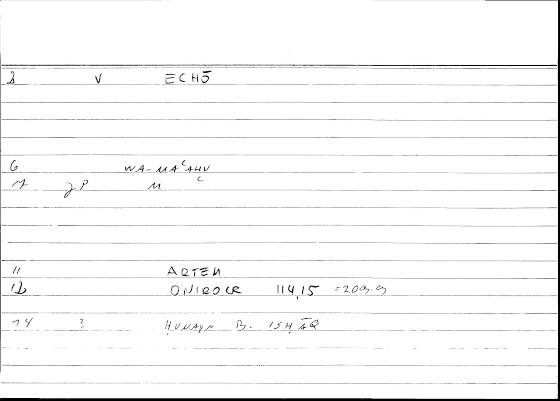 3 V ECHŌ
6 WA-MAʿAHU
7 P M ʿ
11 ARTEM
12 ONIROCR 114,15 =209.9
14 ? ḤUNAYN B. ISḤĀQ